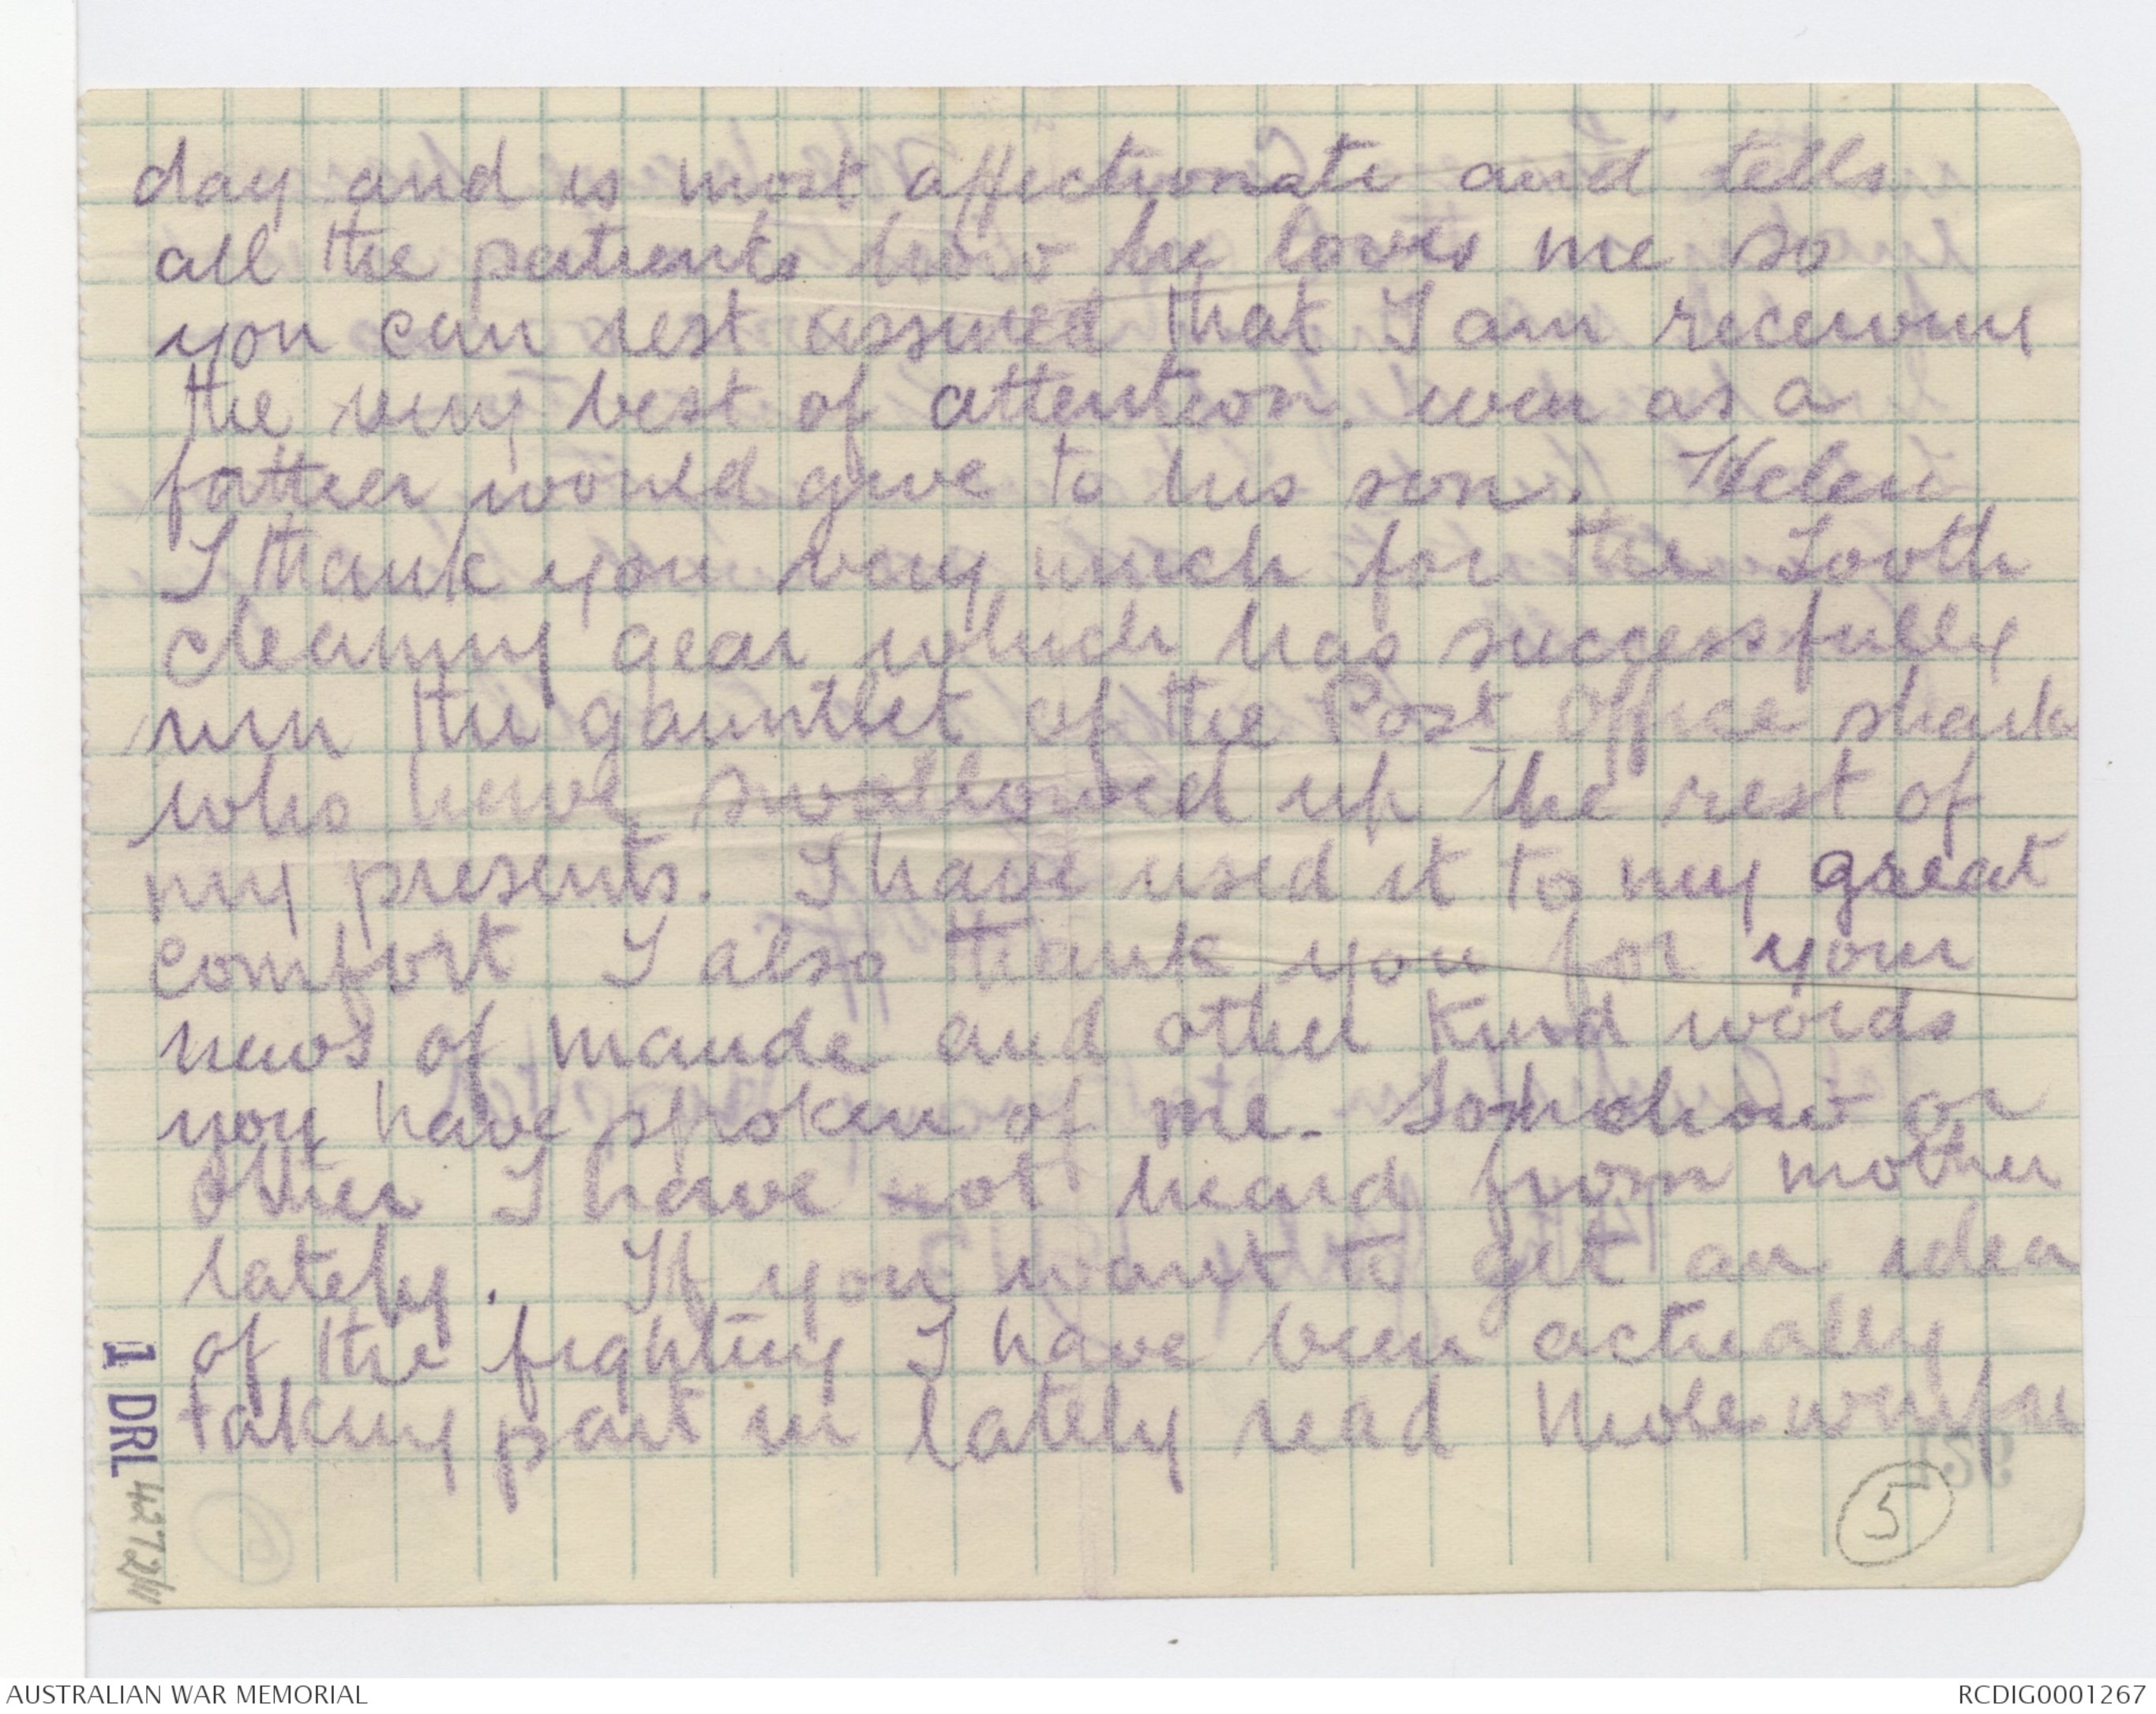 day and is most affectionate and tells
all the patients how he loves me so
you can rest assured that I am receiving
the very best of attention, even as a
father would give to his son. Helen
I thank you very much for the Tooth
cleaning gear which has successfully
run the gauntlet of the Post Office shark
who have swallowed up the rest of
my presents. I have used it to my great
comfort I also thank you for your
news of Maude and other kind words
you have spoken of me. Somehow or
other I have not heard from mother
lately. If you want to get an idea
of the fighting I have been actually
taking part in lately read
5
1 DRL 427
AUSTRALIAN WAR MEMORIAL
RCDIG0001267